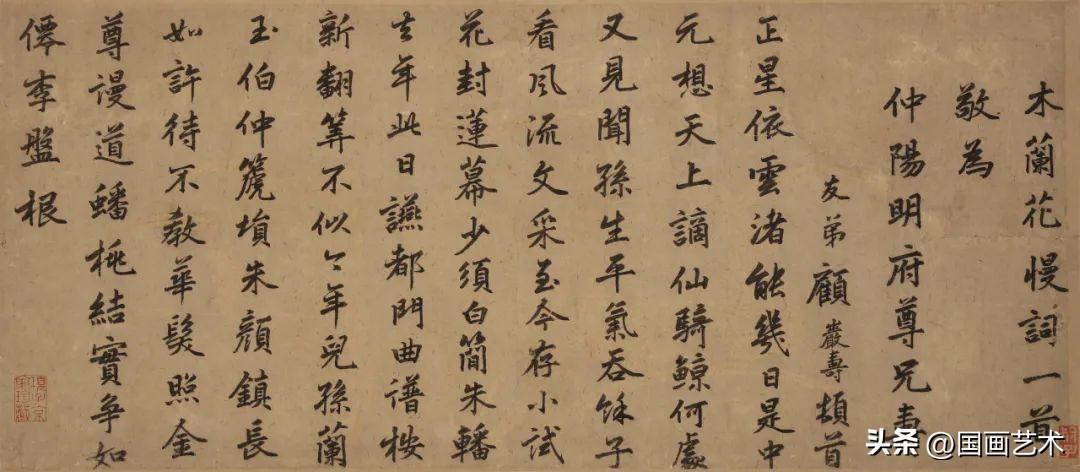 木蘭花慢詞一首
敬為
仲陽明府尊兄壽
友弟顧巖壽頓首
正星依雲渚能幾日是中
元想天上謫仙騎鯨何處
又見聞孫生平氣吞餘子
看風流文采至今存小試
花封蓮幕少須白簡朱轓
去年此日讌都門曲譜桉
新翻筭不似今年兒孫蘭
玉伯仲篪塤朱顏鎮長
如許待不教華髮照金
尊漫道蟠桃結實爭如
僊李盤根
头条 @国画艺术